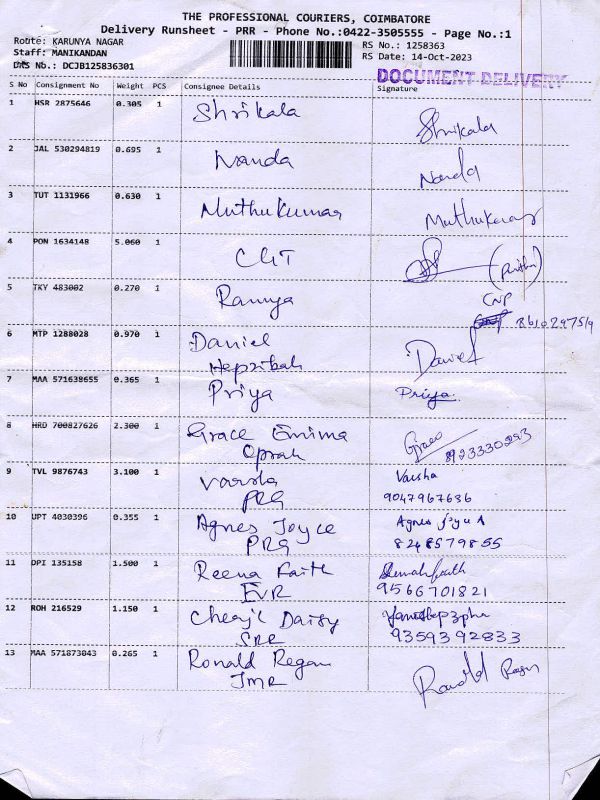 THE PROFESSIONAL COURIERS, COIMBATORE
Delivery Runsheet - PRR - Phone No.:0422-3505555 - Page No.:1
Route: KARUNYA NAGAR RS No.: 1258363
Staff: MANIKANDAN RS Date: 14-Oct-2023
DRS No.: DCJB125836301
DOCUMENT DELIVERY
S No Consignment No Weight PCS Consignee Details Signature
1 HSR 2875646 0.305 1 Shrikala Shrikala
2 JAL 530294819 0.695 1 Nanda Nanda
3 TUT 1131966 0.630 1 Muthukumar
4 PON 1634148 5.060 1
5 TKY 483002 0.270 1 Ramya CNP
6 MTP 1288028 0.970 1 Daniel Daniel
Hepzibah
7 MAA 571638655 0.365 1 Priya Priya
8 HRD 700827626 2.300 1 Grace Emima Grace
Oprah
9 TVL 9876743 3.100 1 Varsha Varsha
PRG 9047967636
10 UPT 4030396 0.355 1 Agnes Joyce Agnes Joyce A
PRG 8248579855
11 DPI 135158 1.500 1 Reena Faith
EVR 9566701821
12 ROH 216529 1.150 1 Daisy
SRR 9359392833
13 MAA 571873043 0.265 1 Ronald Regan Ronald
JMR